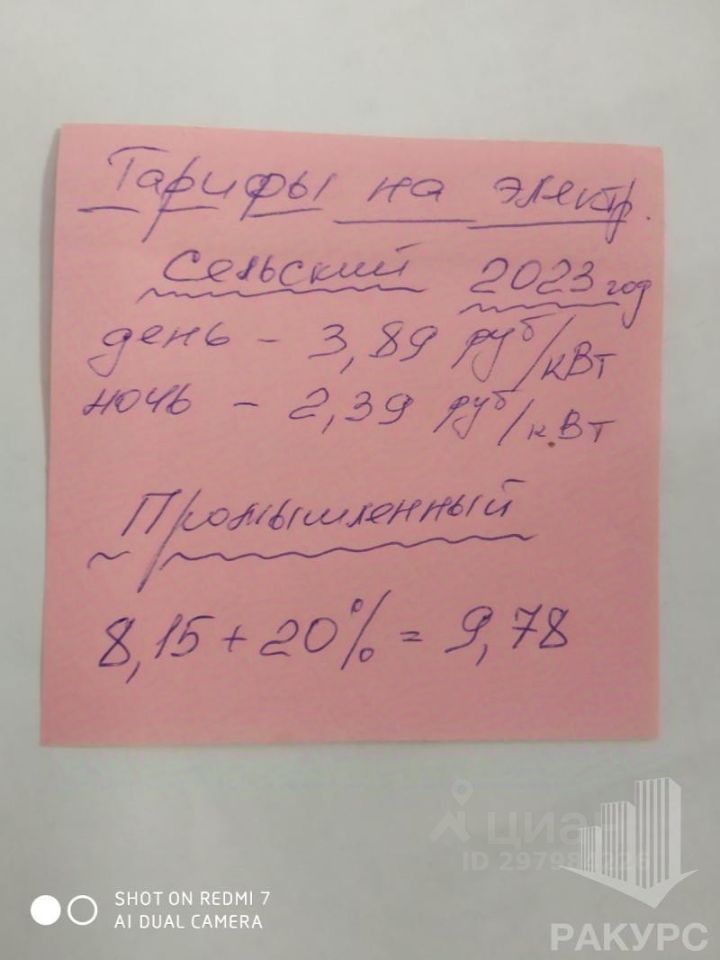 Тарифы на электр.
Сельский 2023 год
день - 3,89 руб/кВт
ночь - 2,39 руб/кВт
Промышленный
8,15 + 20% = 9,78
циан
SHOT ON REDMI 7
AI DUAL CAMERA
РАКУРС